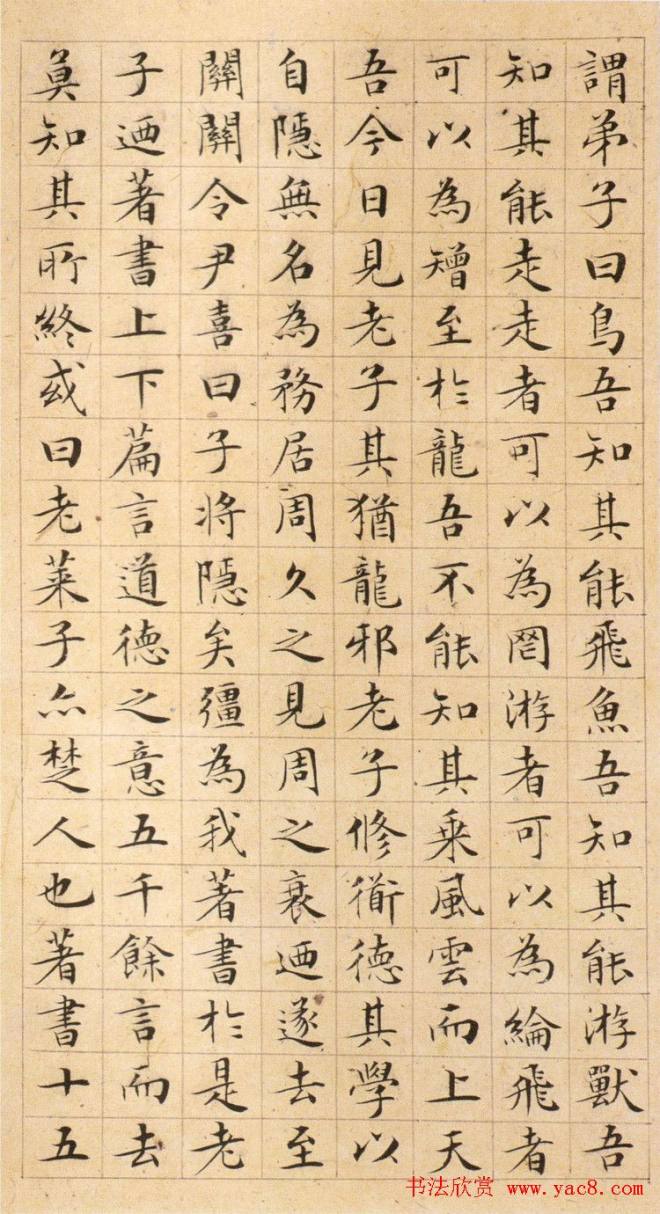 謂弟子曰鳥吾知其能飛魚吾知其能游獸吾
知其能走走者可以為罔游者可以為綸飛者
可以為矰至於龍吾不能知其乘風雲而上天
吾今日見老子其猶龍邪老子修衟德其學以
自隱無名為務居周久之見周之衰迺遂去至
關關令尹喜曰子將隱矣彊為我著書於是老
子迺著書上下篇言道德之意五千餘言而去
莫知其所終或曰老萊子亦楚人也著書十五
书法欣赏 www.yac8.com